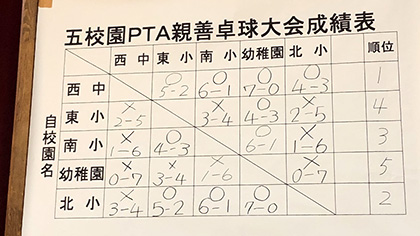 五校園PTA親善卓球大会成績表
西中 東小 南小 幼稚園 北小 順位
自校園名
西中 ○ 5-2 ○ 6-1 ○ 7-0 ○ 4-3 1
東小 × 2-5 × 3-4 ○ 4-3 × 2-5 4
南小 × 1-6 ○ 4-3 ○ 6-1 × 1-6 3
幼稚園 × 0-7 × 3-4 × 1-6 × 0-7 5
北小 × 3-4 ○ 5-2 ○ 6-1 ○ 7-0 2